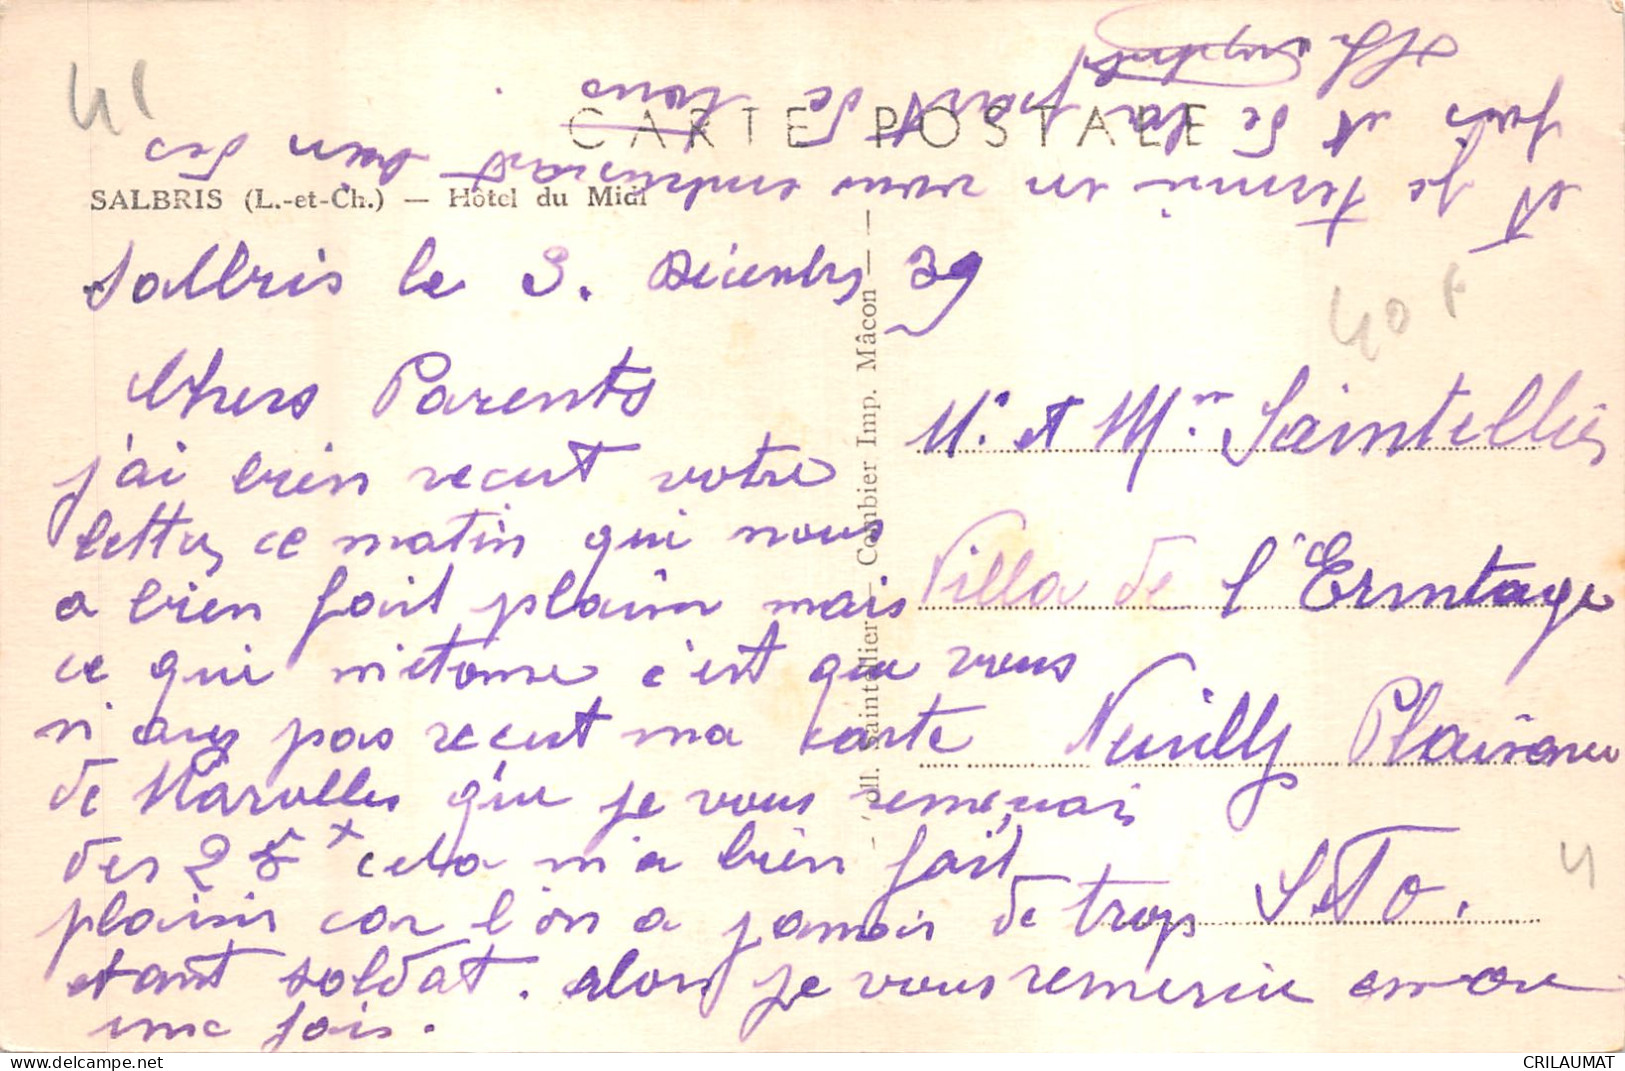 41
CARTE POSTALE
SALBRIS (L.-et-Ch.) — Hôtel du Midi
Salbris le 3. Décembre 39
Chers Parents
j'ai bien recut votre
lettre ce matin qui nous
a bien fait plaisir mais
ce qui m'etonne c'est que vous
n'avez pas recut ma carte
de Marolles que je vous remerciai
des 25 cela m'a bien fait
plaisir car l'on a jamais de trop
etant soldat. alors je vous remercie encore
une fois.
et je termine en vous embrassant bien des
fois et de la part de tous
Coll. Saintellier — Combier Imp. Mâcon
40 F
Mr. et Mme. Saintellier
Villa de l'Ermitage
Neuilly Plaisance
S et O.
4
CRILAUMAT
www.delcampe.net